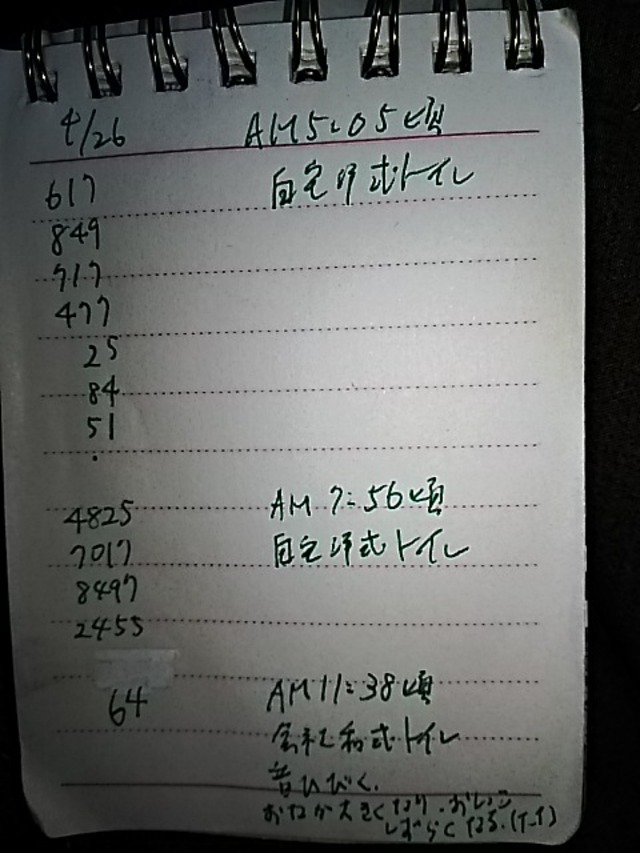 4/26 AM5:05頃
617 自宅洋式トイレ
849
717
477
25
84
51
.
4825 AM 7:56頃
7017 自宅洋式トイレ
8497
2455
64 AM11:38頃
会社和式トイレ
音ひびく.
おなか大きくなり.おしっこ
しばらくなる.(T-T)